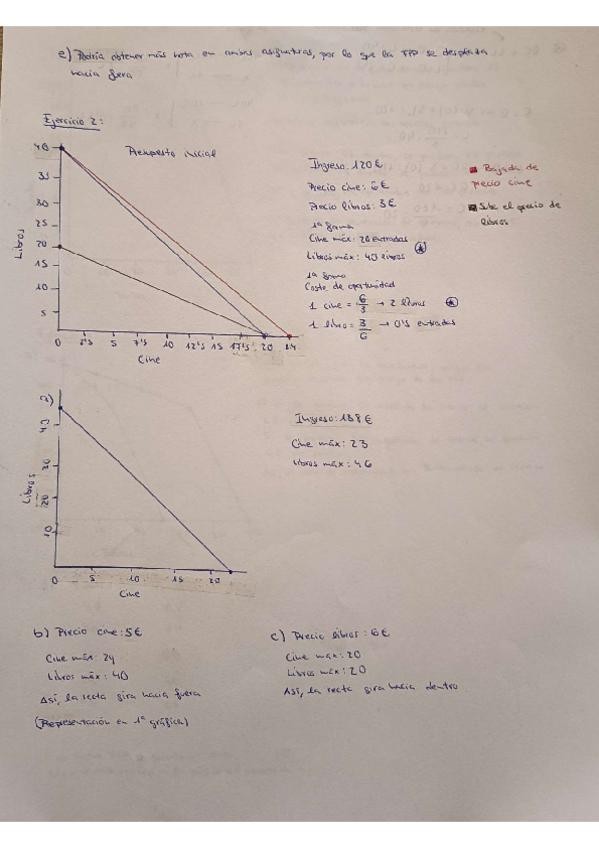 e) Podría obtener más nota en ambas asignaturas, por lo que la FPP se desplaza
hacia fuera
Ejercicio 2:
Presupuesto inicial
40
35
30
25
20
15
10
5
Libros
0 2'5 5 7'5 10 12'5 15 17'5 20 24
Cine
Ingreso: 120€
Precio cine: 6€
Precio libros: 3€
1ª forma
Cine máx: 20 entradas
Libros máx: 40 libros
1ª forma
Coste de oportunidad
1 cine = 6/3 → 2 libros
1 libro = 3/6 → 0'5 entradas
Bajada de
precio cine
Sube el precio de
libros
a)
40
30
20
10
Libros
0 5 10 15 20
Cine
Ingreso: 138€
Cine máx: 23
Libros máx: 46
b) Precio cine: 5€
Cine máx: 24
Libros máx: 40
Así, la recta gira hacia fuera
(Representación en 1ª gráfica)
c) Precio libros: 6€
Cine max: 20
Libros max: 20
Así, la recta gira hacia dentro